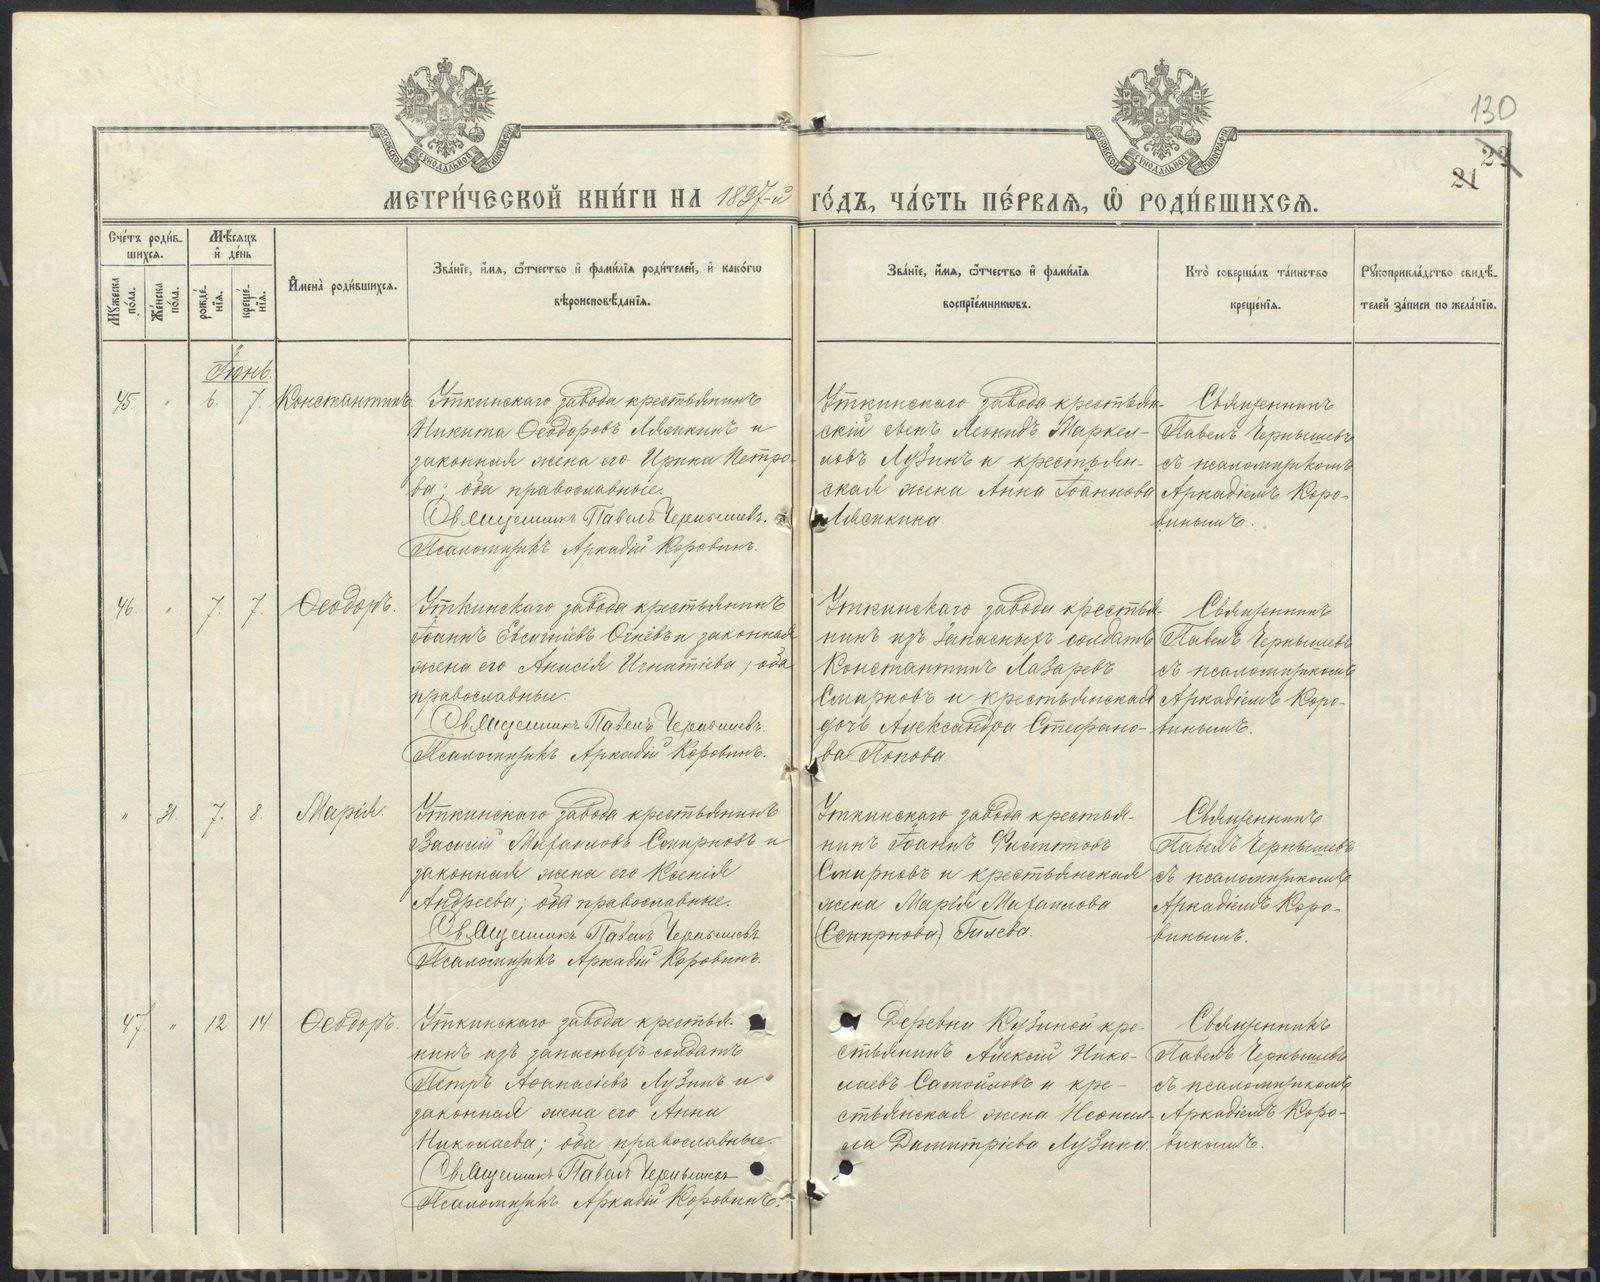 130
23
21
МЕТРИ́ЧЕСКОЙ КНИ́ГИ НА 1897-й ГО́ДЪ, ЧА́СТЬ ПЕ́РВАѦ, Ѡ҆ РОДИ́ВШИХСѦ.
Сче́тъ роди́в-
шихсѧ.
Мꙋжеска по́ла.
Же́нска по́ла.
Мѣ́сѧцъ и҆ де́нь
рожде́-
нїѧ.
креще́-
нїѧ.
И҆мена̀ роди́вшихсѧ.
Зва́нїе, и҆́мѧ, ѻ҆́тчество и҆ фами́лїѧ роди́телей, и҆ како́гѡ
вѣроисповѣ́данїѧ.
Зва́нїе, и҆́мѧ, ѻ҆́тчество и҆ фами́лїѧ
воспрїе́мниковъ.
Кто̀ соверша́лъ та́инство
креще́нїѧ.
Рꙋкоприкла́дство свидѣ́-
телей за́писи по жела́нїю.
Іюнь.
45. " 6. 7. Константинъ.
Уткинскаго завода крестьянинъ
Никита Ѳеодоровъ Лясикинъ и
законная жена его Ирина Петро-
ва; оба православные.
Священникъ Павелъ Чернышевъ.
Псаломщикъ Аркадій Коровинъ.
Уткинскаго завода крестьян-
скій сынъ Леонидъ Маркел-
ловъ Лузинъ и крестьян-
ская жена Анна Іоаннова
Лясикина
Священникъ
Павелъ Чернышевъ
съ псаломщикомъ
Аркадіемъ Коро-
винымъ.
46. " 7. 7. Ѳеодоръ.
Уткинскаго завода крестьянинъ
Іоаннъ Евсигніевъ Огнёвъ и законная
жена его Анисія Игнатіева; оба
православные.
Священникъ Павелъ Чернышевъ.
Псаломщикъ Аркадій Коровинъ.
Уткинскаго завода крестья-
нинъ изъ запасныхъ солдатъ
Константинъ Лазаревъ
Смирновъ и крестьянская
дочь Александра Стефано-
ва Попова
Священникъ
Павелъ Чернышевъ
съ псаломщикомъ
Аркадіемъ Коро-
винымъ.
" 31. 7. 8. Марія.
Уткинскаго завода крестьянинъ
Василій Михаиловъ Смирновъ и
законная жена его Ксенія
Андреева; оба православные.
Священникъ Павелъ Чернышевъ
Псаломщикъ Аркадій Коровинъ.
Уткинскаго завода крестья-
нинъ Іоаннъ Филиповъ
Смирновъ и крестьянская
жена Марія Михаилова
(Смирнова) Гилева.
Священникъ
Павелъ Чернышевъ
съ псаломщикомъ
Аркадіемъ Коро-
винымъ.
47. " 12 14 Ѳеодоръ.
Уткинскаго завода крестья-
нинъ изъ запасныхъ солдатъ
Петръ Аѳанасіевъ Лузинъ и
законная жена его Анна
Николаева; оба православные.
Священникъ Павелъ Чернышевъ
Псаломщикъ Аркадій Коровинъ.
Деревни Кузиной кре-
стьянинъ Алексій Нико-
лаевъ Самойловъ и кре-
стьянская жена Неонил-
ла Димитріева Лузина.
Священникъ
Павелъ Чернышевъ
съ псаломщикомъ
Аркадіемъ Коро-
винымъ.
METRIKI.GASO-URAL.RU